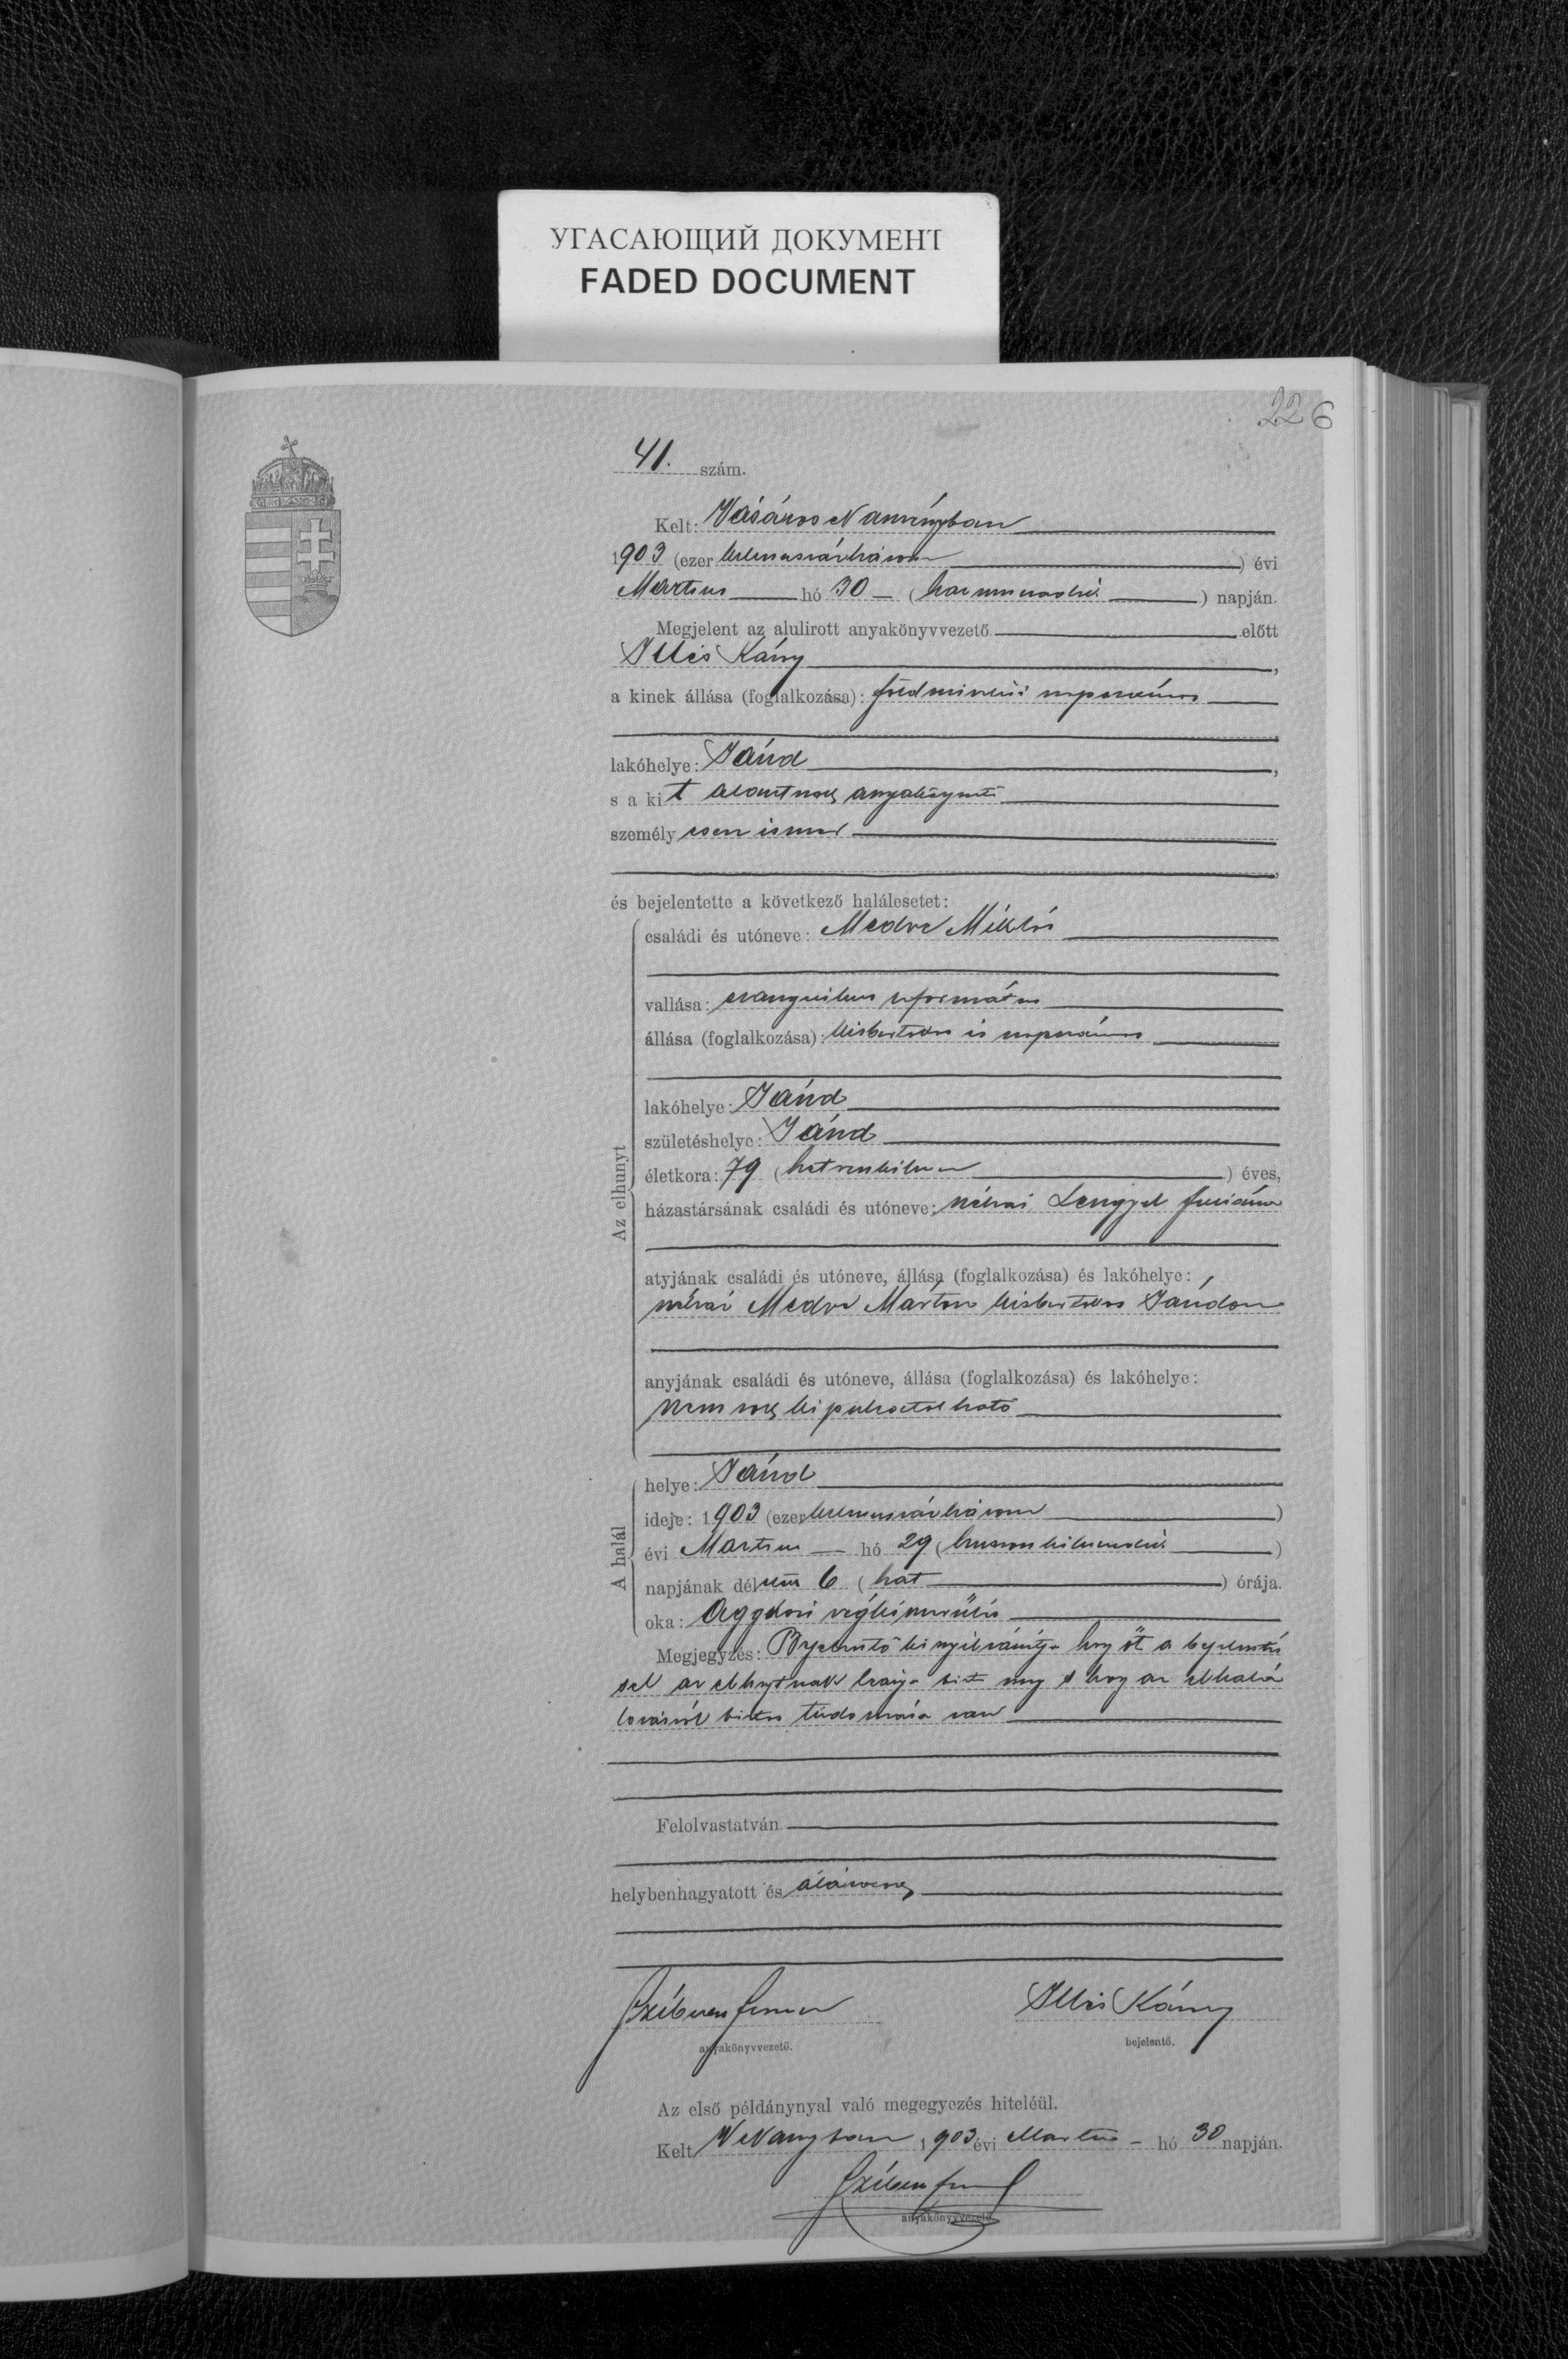 УГАСАЮЩИЙ ДОКУМЕНТ
FADED DOCUMENT
226
41. szám.
Kelt: Vásáros Naményban
1903 (ezer kilenczszázhárom) évi
Martius hó 30 (harminczadik) napján.
Megjelent az alulirott anyakönyvvezető előtt
Illés Károly,
a kinek állása (foglalkozása): földmivelési napszámos
lakóhelye: Jánd,
s a kit alantnevezett anyakönyvvezető
személyesen ismer,
és bejelentette a következő halálesetet:
Az elhunyt
családi és utóneve: Medve Miklós
vallása: evangelikus református
állása (foglalkozása): kisbirtokos és napszámos
lakóhelye: Jánd
születéshelye: Jánd
életkora: 79 (hetvenkilencz) éves,
házastársának családi és utóneve: néhai Lengyel Juliánna
atyjának családi és utóneve, állása (foglalkozása) és lakóhelye:
néhai Medve Márton kisbirtokos Jándon
anyjának családi és utóneve, állása (foglalkozása) és lakóhelye:
nem volt kipuhatolható
A halál
helye: Jánd
ideje: 1903 (ezer kilenczszázhárom)
évi Martius hó 29 (huszonkilenczedik)
napjának délután 6 (hat) órája.
oka: Aggkori végkimerülés
Megjegyzés: Bejelentő kinyilvánítja hogy őt a bejelentés
sel az elhunytnak leánya bizta meg s hogy az elhalá
lozásról biztos tudomása van
Felolvastatván
helybenhagyatott és aláiratott
anyakönyvvezető.
Illés Károly
bejelentő.
Az első példánynyal való megegyezés hiteléül.
Kelt VNamnyban 1903 évi Martius hó 30 napján.
anyakönyvvezető.